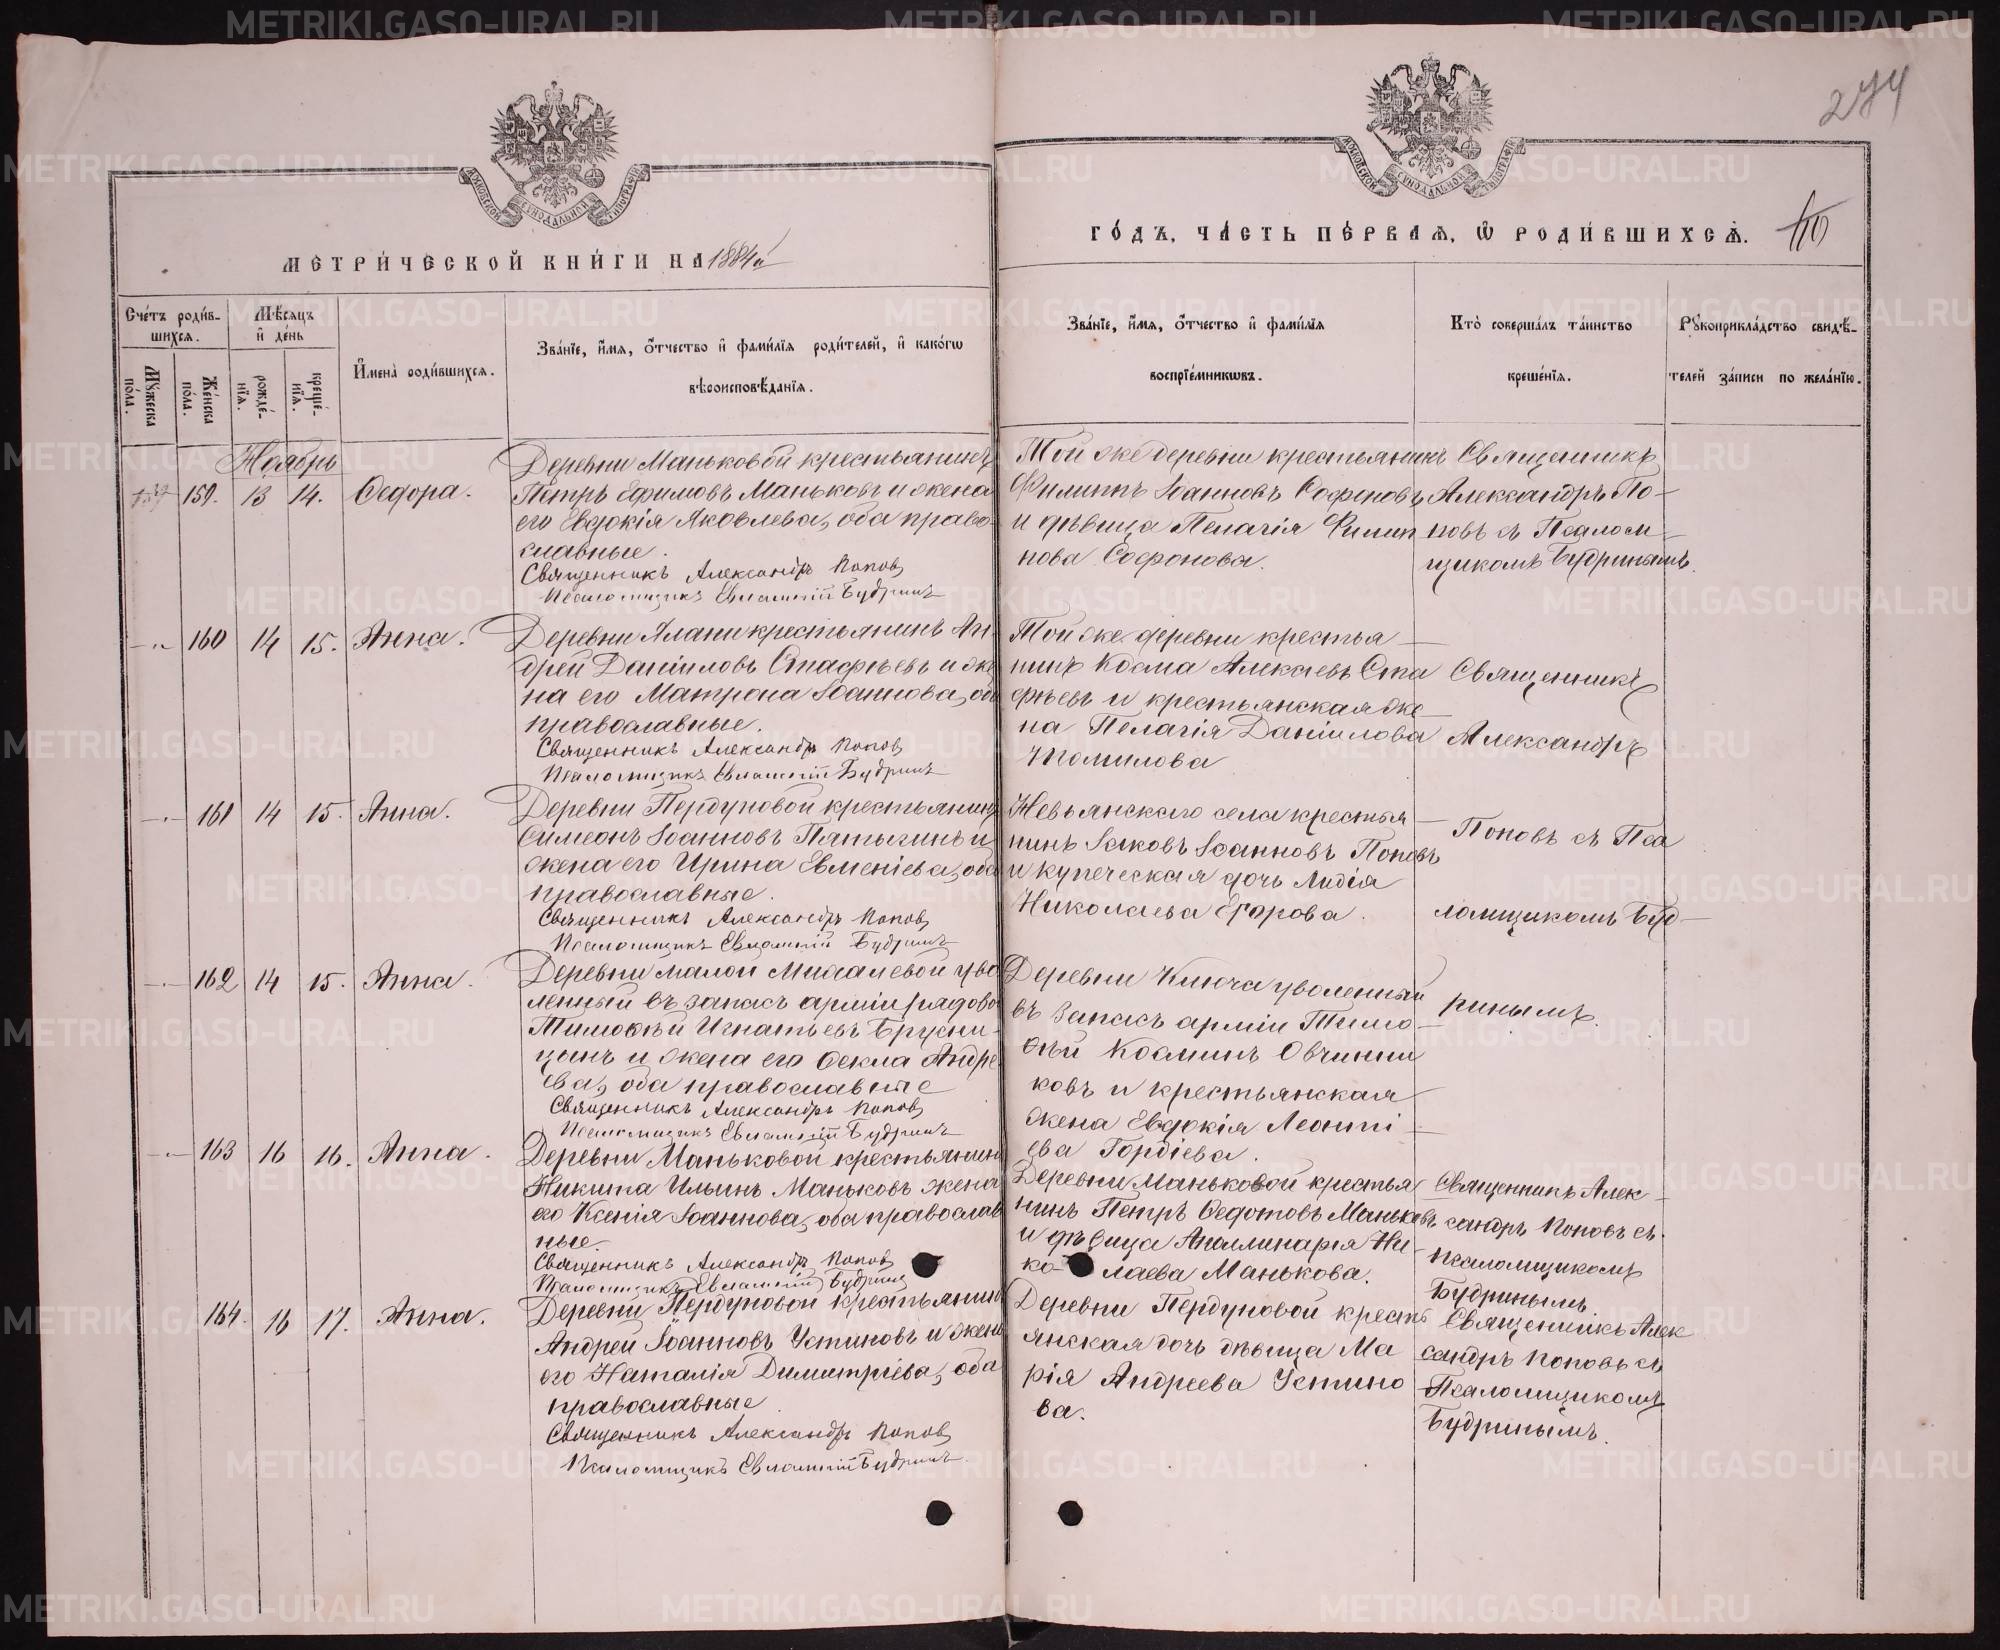 274
МЕТРИЧЕСКОЙ КНИГИ НА 1884й
ГОДЪ, ЧАСТЬ ПЕРВАЯ, Ѡ РОДИВШИХСЯ. 110
Счетъ родив-
шихся.
Мужеска пола.
Женска пола.
Мѣсяцъ и день
рожде-
нія.
креще-
нія.
Имена родившихся.
Званіе, имя, отчество и фамилія родителей, и какогѡ
вѣроисповѣданія.
Званіе, имя, отчество и фамилія
воспріемникѡвъ.
Кто совершалъ таинство
крещенія.
Рукоприкладство свидѣ-
телей записи по желанію.
Ноябрь
159. 13 14. Ѳедора.
Деревни Маньковой крестьянинъ
Петръ Ефимовъ Маньковъ и жена
его Евдокія Яковлева, оба право-
славные.
Священникъ Александръ Поповъ
Псаломщикъ Евлампій Будринъ
Той же деревни крестьянинъ
Филиппъ Іоанновъ Софоновъ
и дѣвица Пелагія Филип
пова Софонова.
Священникъ
Александръ По-
повъ съ Псалом-
щикомъ Будринымъ.
160 14 15. Анна.
Деревни Алапи крестьянинъ Ан-
дрей Даніиловъ Стафѣевъ и же
на его Матрона Іоаннова, оба
православные.
Священникъ Александръ Поповъ
Псаломщикъ Евлампій Будринъ
Той же деревни крестья-
нинъ Косма Алексѣевъ Ста
фѣевъ и крестьянская же-
на Пелагія Даніилова
Томилова
Священникъ
Александръ
161 14 15. Анна.
Деревни Пердуновой крестьянинъ
Симеонъ Іоанновъ Пятыгинъ и
жена его Ирина Евменіева, оба
православные.
Священникъ Александръ Поповъ
Псаломщикъ Евлампій Будринъ
Невьянскаго села крестья-
нинъ Іаковъ Іоанновъ Поповъ
и купеческая дочь Лидія
Николаева Егорова.
Поповъ съ Пса
ломщикомъ Буд-
162 14 15. Анна.
Деревни малой Михалевой уво
ленный въ запасъ арміи рядовой
Тимоѳей Игнатьевъ Брусни-
цынъ и жена его Ѳекла Андре
ева, оба православные
Священникъ Александръ Поповъ
Псаломщикъ Евлампій Будринъ
Деревни Ключа уволенный
въ запасъ арміи Тимо-
ѳей Косминъ Овчинни
ковъ и крестьянская
жена Евдокія Леонті-
ева Гордіева.
ринымъ.
163 16 16. Анна.
Деревни Маньковой крестьянинъ
Никита Ильинъ Маньковъ жена
его Ксенія Іоаннова, оба православ
ные.
Священникъ Александръ Поповъ
Псаломщикъ Евлампій Будринъ
Деревни Маньковой крестья
нинъ Петръ Ѳедотовъ Маньковъ
и дѣвица Аполлинарія Ни-
ко- лаева Манькова.
Священникъ Алек-
сандръ Поповъ съ
псаломщикомъ
Будринымъ.
164. 16 17. Анна.
Деревни Пердуновой крестьянинъ
Андрей Іоанновъ Устиновъ и жена
его Наталія Димитріева, оба
православные
Священникъ Александръ Поповъ
Псаломщикъ Евлампій Будринъ
Деревни Пердуновой кресть
янская дочь дѣвица Ма
рія Андреева Устино
ва.
Священникъ Алек
сандръ Поповъ съ
Псаломщикомъ
Будринымъ.